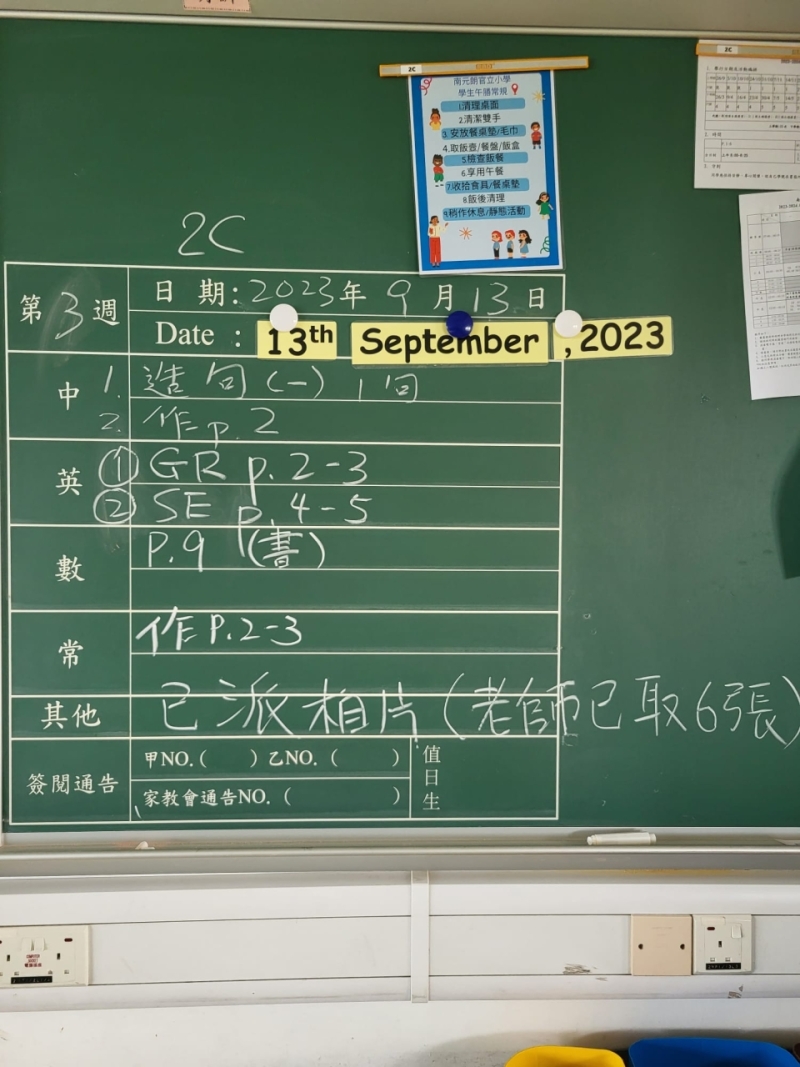 2C
南元朗官立小學
學生午膳常規
1.清理桌面
2.清潔雙手
3.安放餐桌墊/毛巾
4.取飯壺/餐盤/飯盒
5.檢查飯餐
6.享用午餐
7.收拾食具/餐桌墊
8.飯後清理
9.稍作休息/靜態活動
2C
2C
第3週
日期:2023年9月13日
Date : 13th September , 2023
中 1. 造句(一) 1句
2. 作p.2
英 ① GR p.2-3
② SE p.4-5
數 P.9 (書)
常 作P.2-3
其他 已派相片(老師已取6張)
簽閱通告 甲NO.( ) 乙NO.( )
家教會通告NO.( )
值日生